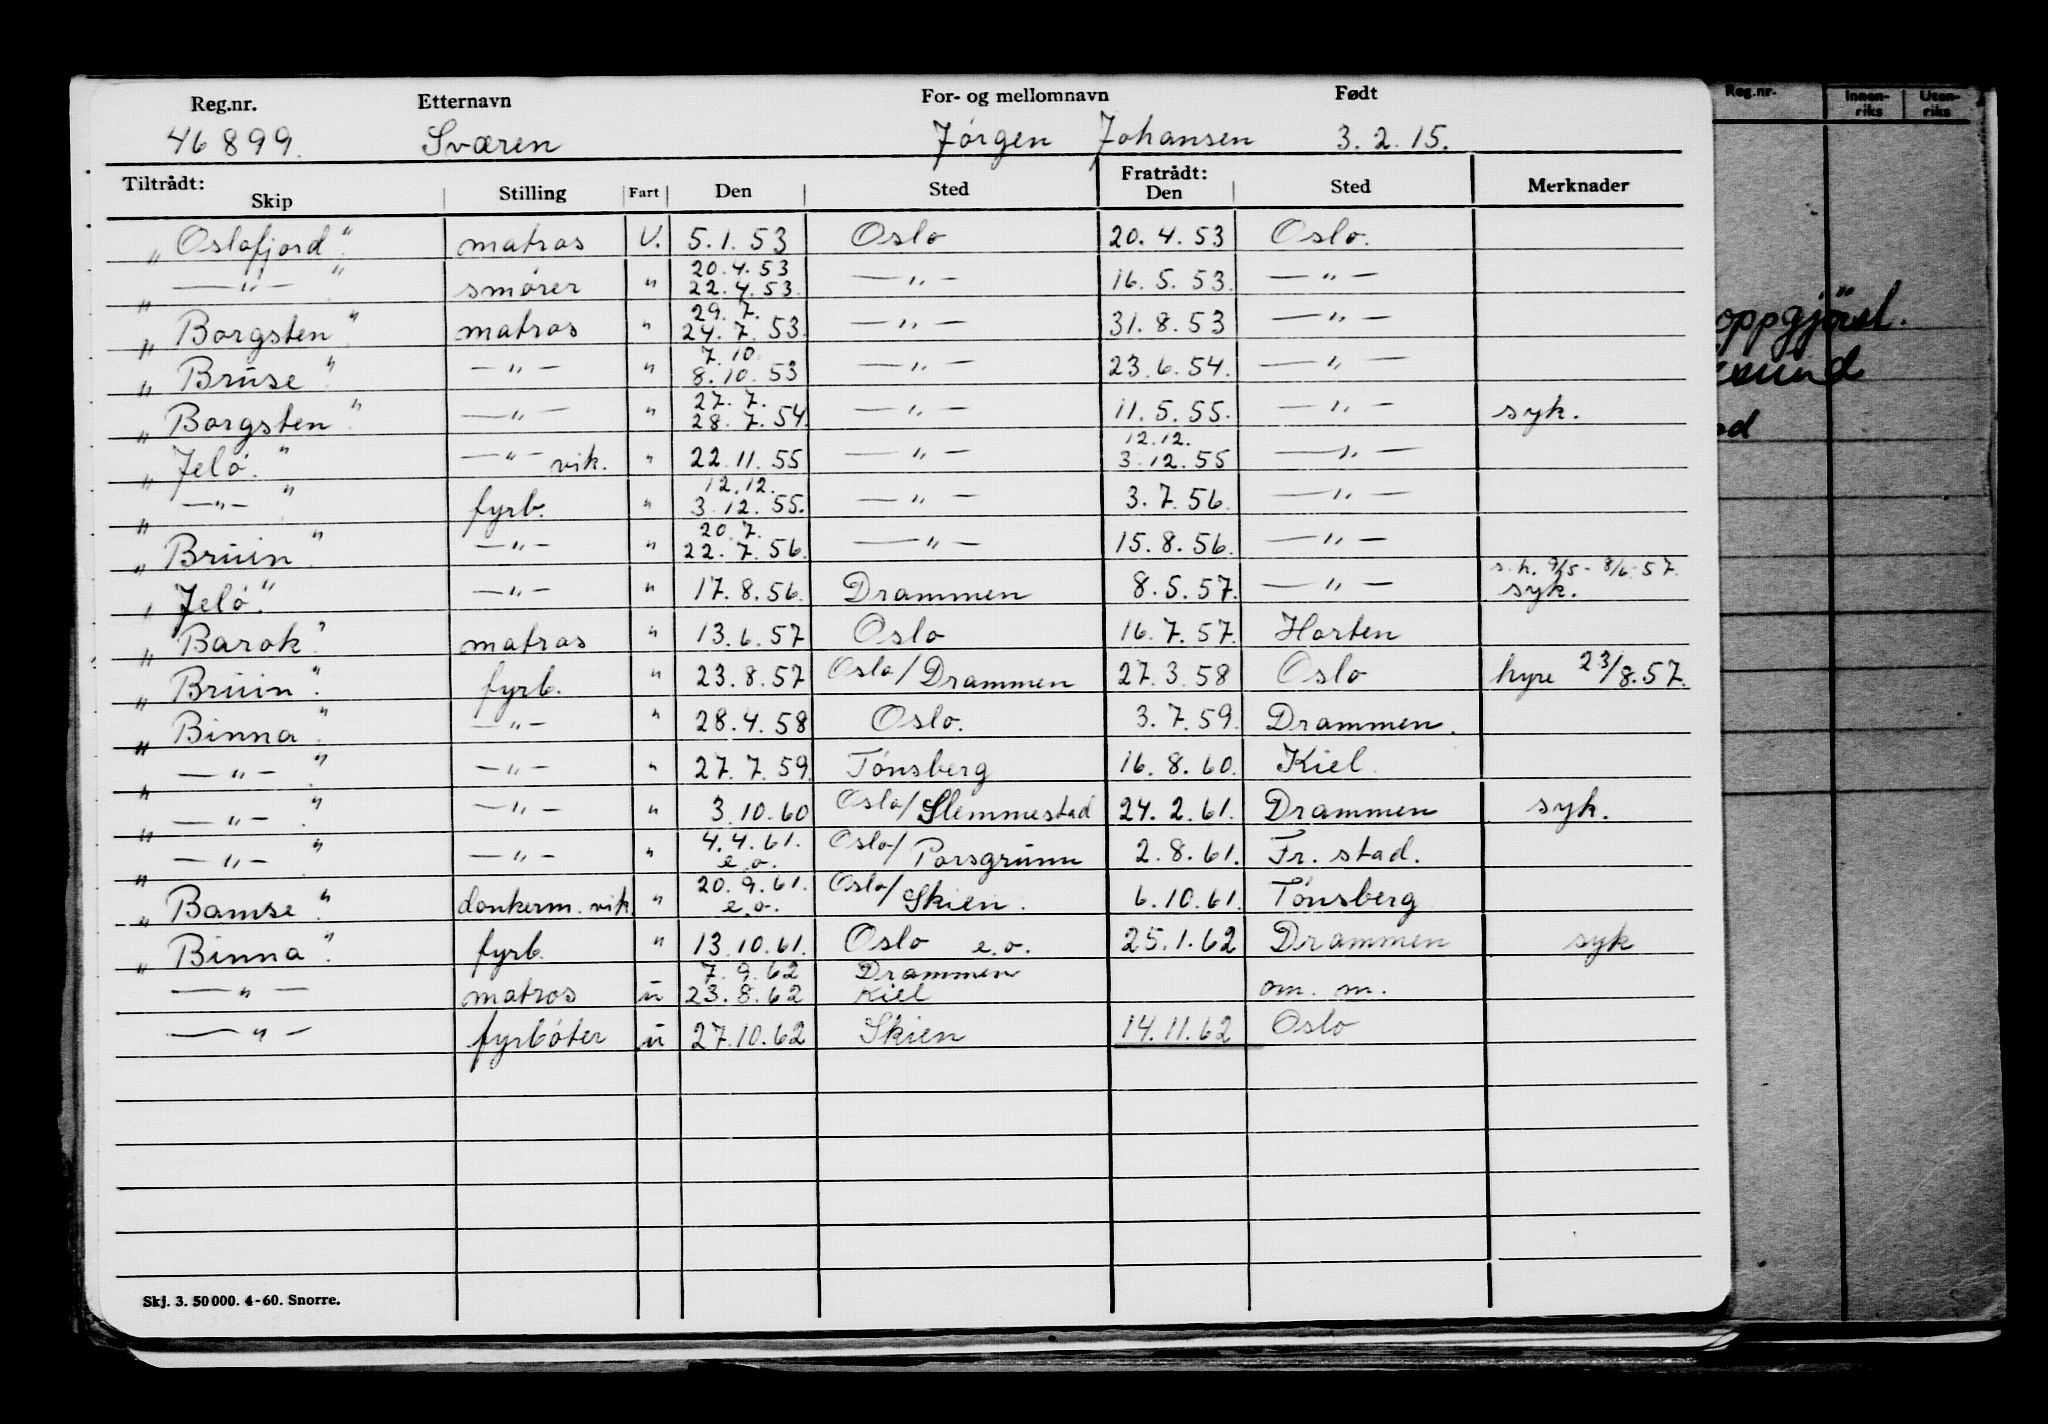 Reg.nr. Etternavn For- og mellomnavn Født
46899. Sværen Jørgen Johansen 3.2.15.
Tiltrådt: Skip Stilling Fart Den Sted Fratrådt: Den Sted Merknader
„Oslofjord". matros U. 5.1.53 Oslo 20.4.53 Oslo.
„ —"— " smører " 20.4.53 22.4.53. —"— 16.5.53. —"—
„Borgsten" matros " 29.7. 24.7.53. —"— 31.8.53 —"—
„Bruse" —"— " 7.10. 8.10.53 —"— 23.6.54. —"—
„Borgsten". —"— " 27.7. 28.7.54. —"— 11.5.55. —"— syk.
„Jelø." —"— vik. " 22.11.55 —"— 12.12. 3.12.55 —"—
„ —"— " fyrb. " 12.12. 3.12.55. —"— 3.7.56. —"—
„Bruin". —"— " 20.7. 22.7.56. —"— 15.8.56. —"—
„Jelø." —"— " 17.8.56. Drammen 8.5.57. —"— s.h. 9/5 - 8/6-57. syk.
„Barok". matros " 13.6.57 Oslo 16.7.57. Horten
„Bruin". fyrb. " 23.8.57 Oslo/Drammen 27.3.58 Oslo hyre 23/8.57.
„Binna". —"— " 28.4.58 Oslo. 3.7.59. Drammen.
„ —"— ". —"— " 27.7.59. Tønsberg 16.8.60. Kiel.
„ —"— ". —"— " 3.10.60 Oslo/Slemmestad 24.2.61. Drammen syk.
„ —"— " —"— " 4.4.61. e.o. Oslo/Porsgrunn 2.8.61. Fr.stad.
„Bamse". donkerm. vik. " 20.9.61. e.o. Oslo/Skien. 6.10.61. Tønsberg
„Binna". fyrb. " 13.10.61. Oslo e.o. 25.1.62 Drammen syk
—"— matros u 7.9.62 23.8.62 Drammen Kiel om. m.
—"— fyrbøter u 27.10.62 Skien 14.11.62 Oslo
Skj. 3. 50000. 4-60. Snorre.
Reg.nr. Innen-riks Uten-riks
oppgjørel.